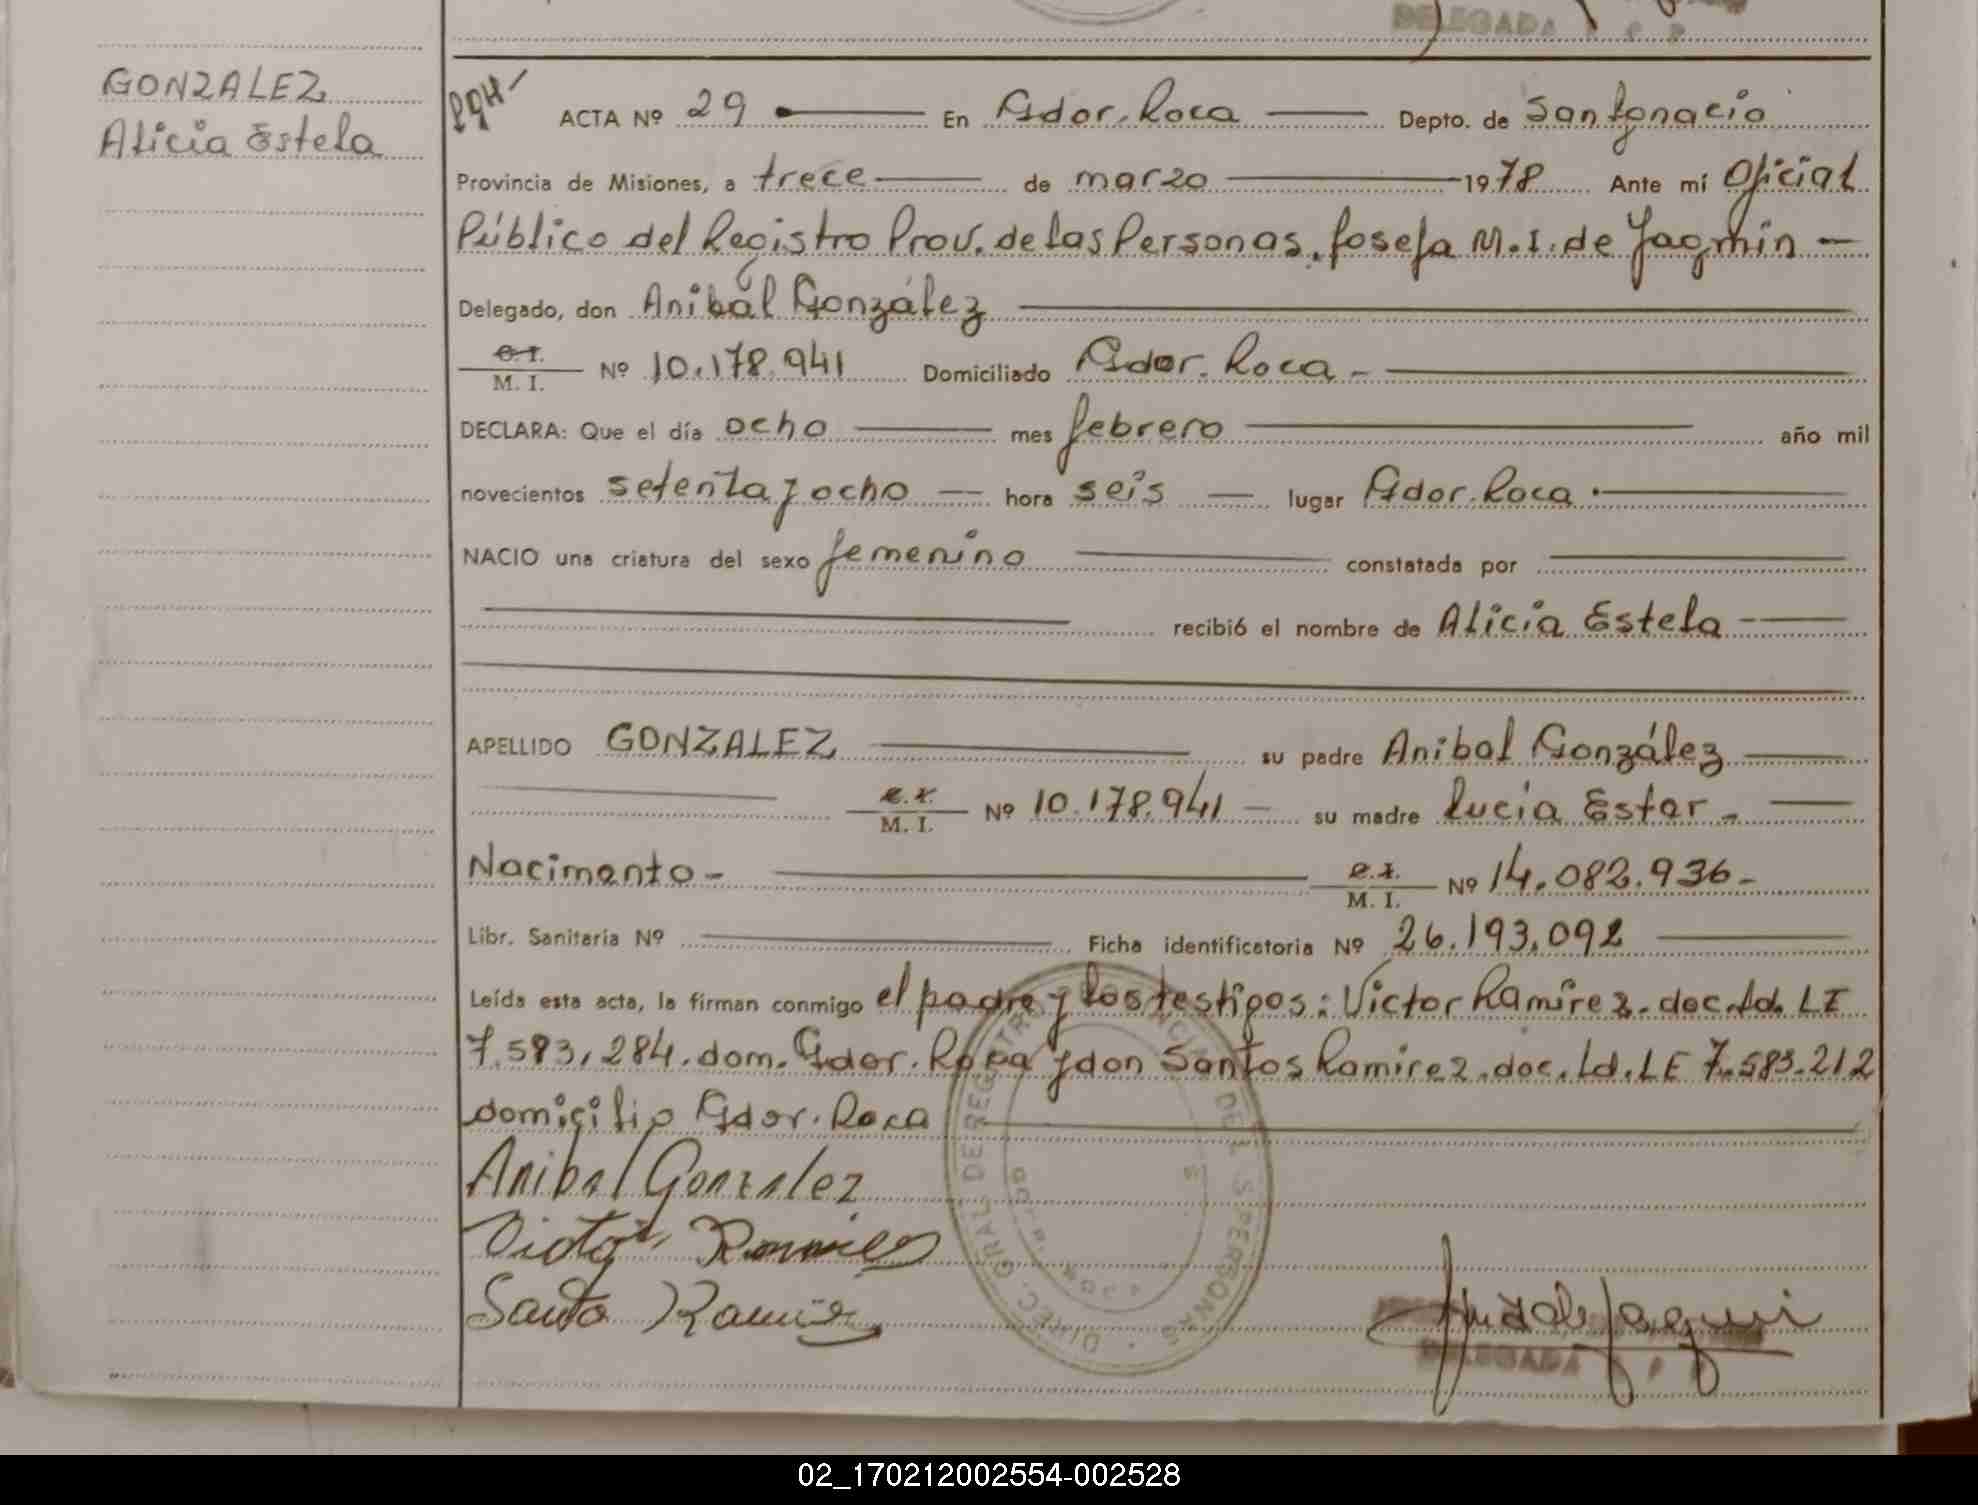 DELEGADA
GONZALEZ
Alicia Estela
ACTA Nº 29 En Gdor. Roca Depto. de San Ignacio
Provincia de Misiones, a trece de marzo 1978 Ante mí Oficial
Público del Registro Prov. de las Personas, Josefa M. I. de Jagmin
Delegado, don Anibal González
C.I. M. I. Nº 10.178.941 Domiciliado Gdor. Roca -
DECLARA: Que el día ocho mes febrero año mil
novecientos setenta y ocho hora seis lugar Gdor. Roca.
NACIO una criatura del sexo femenino constatada por
recibió el nombre de Alicia Estela
APELLIDO GONZALEZ su padre Anibal González
M. I. Nº 10.178.941 - su madre Lucia Ester -
Nacimento - M. I. Nº 14.082.936 -
Libr. Sanitaria Nº Ficha identificatoria Nº 26.193.092
Leída esta acta, la firman conmigo el padre y los testigos: Victor Ramirez. doc. Id. LE
7.583.284. dom. Gdor. Roca y don Santos Ramirez. doc. Id. LE 7.583.212
domicilio Gdor. Roca
Anibal Gonzalez
Victor Ramirez
Santo Ramirez
DIREC. GRAL. DE REGISTRO PROVINCIAL DE LAS PERSONAS
DELEGADA
02_170212002554-002528